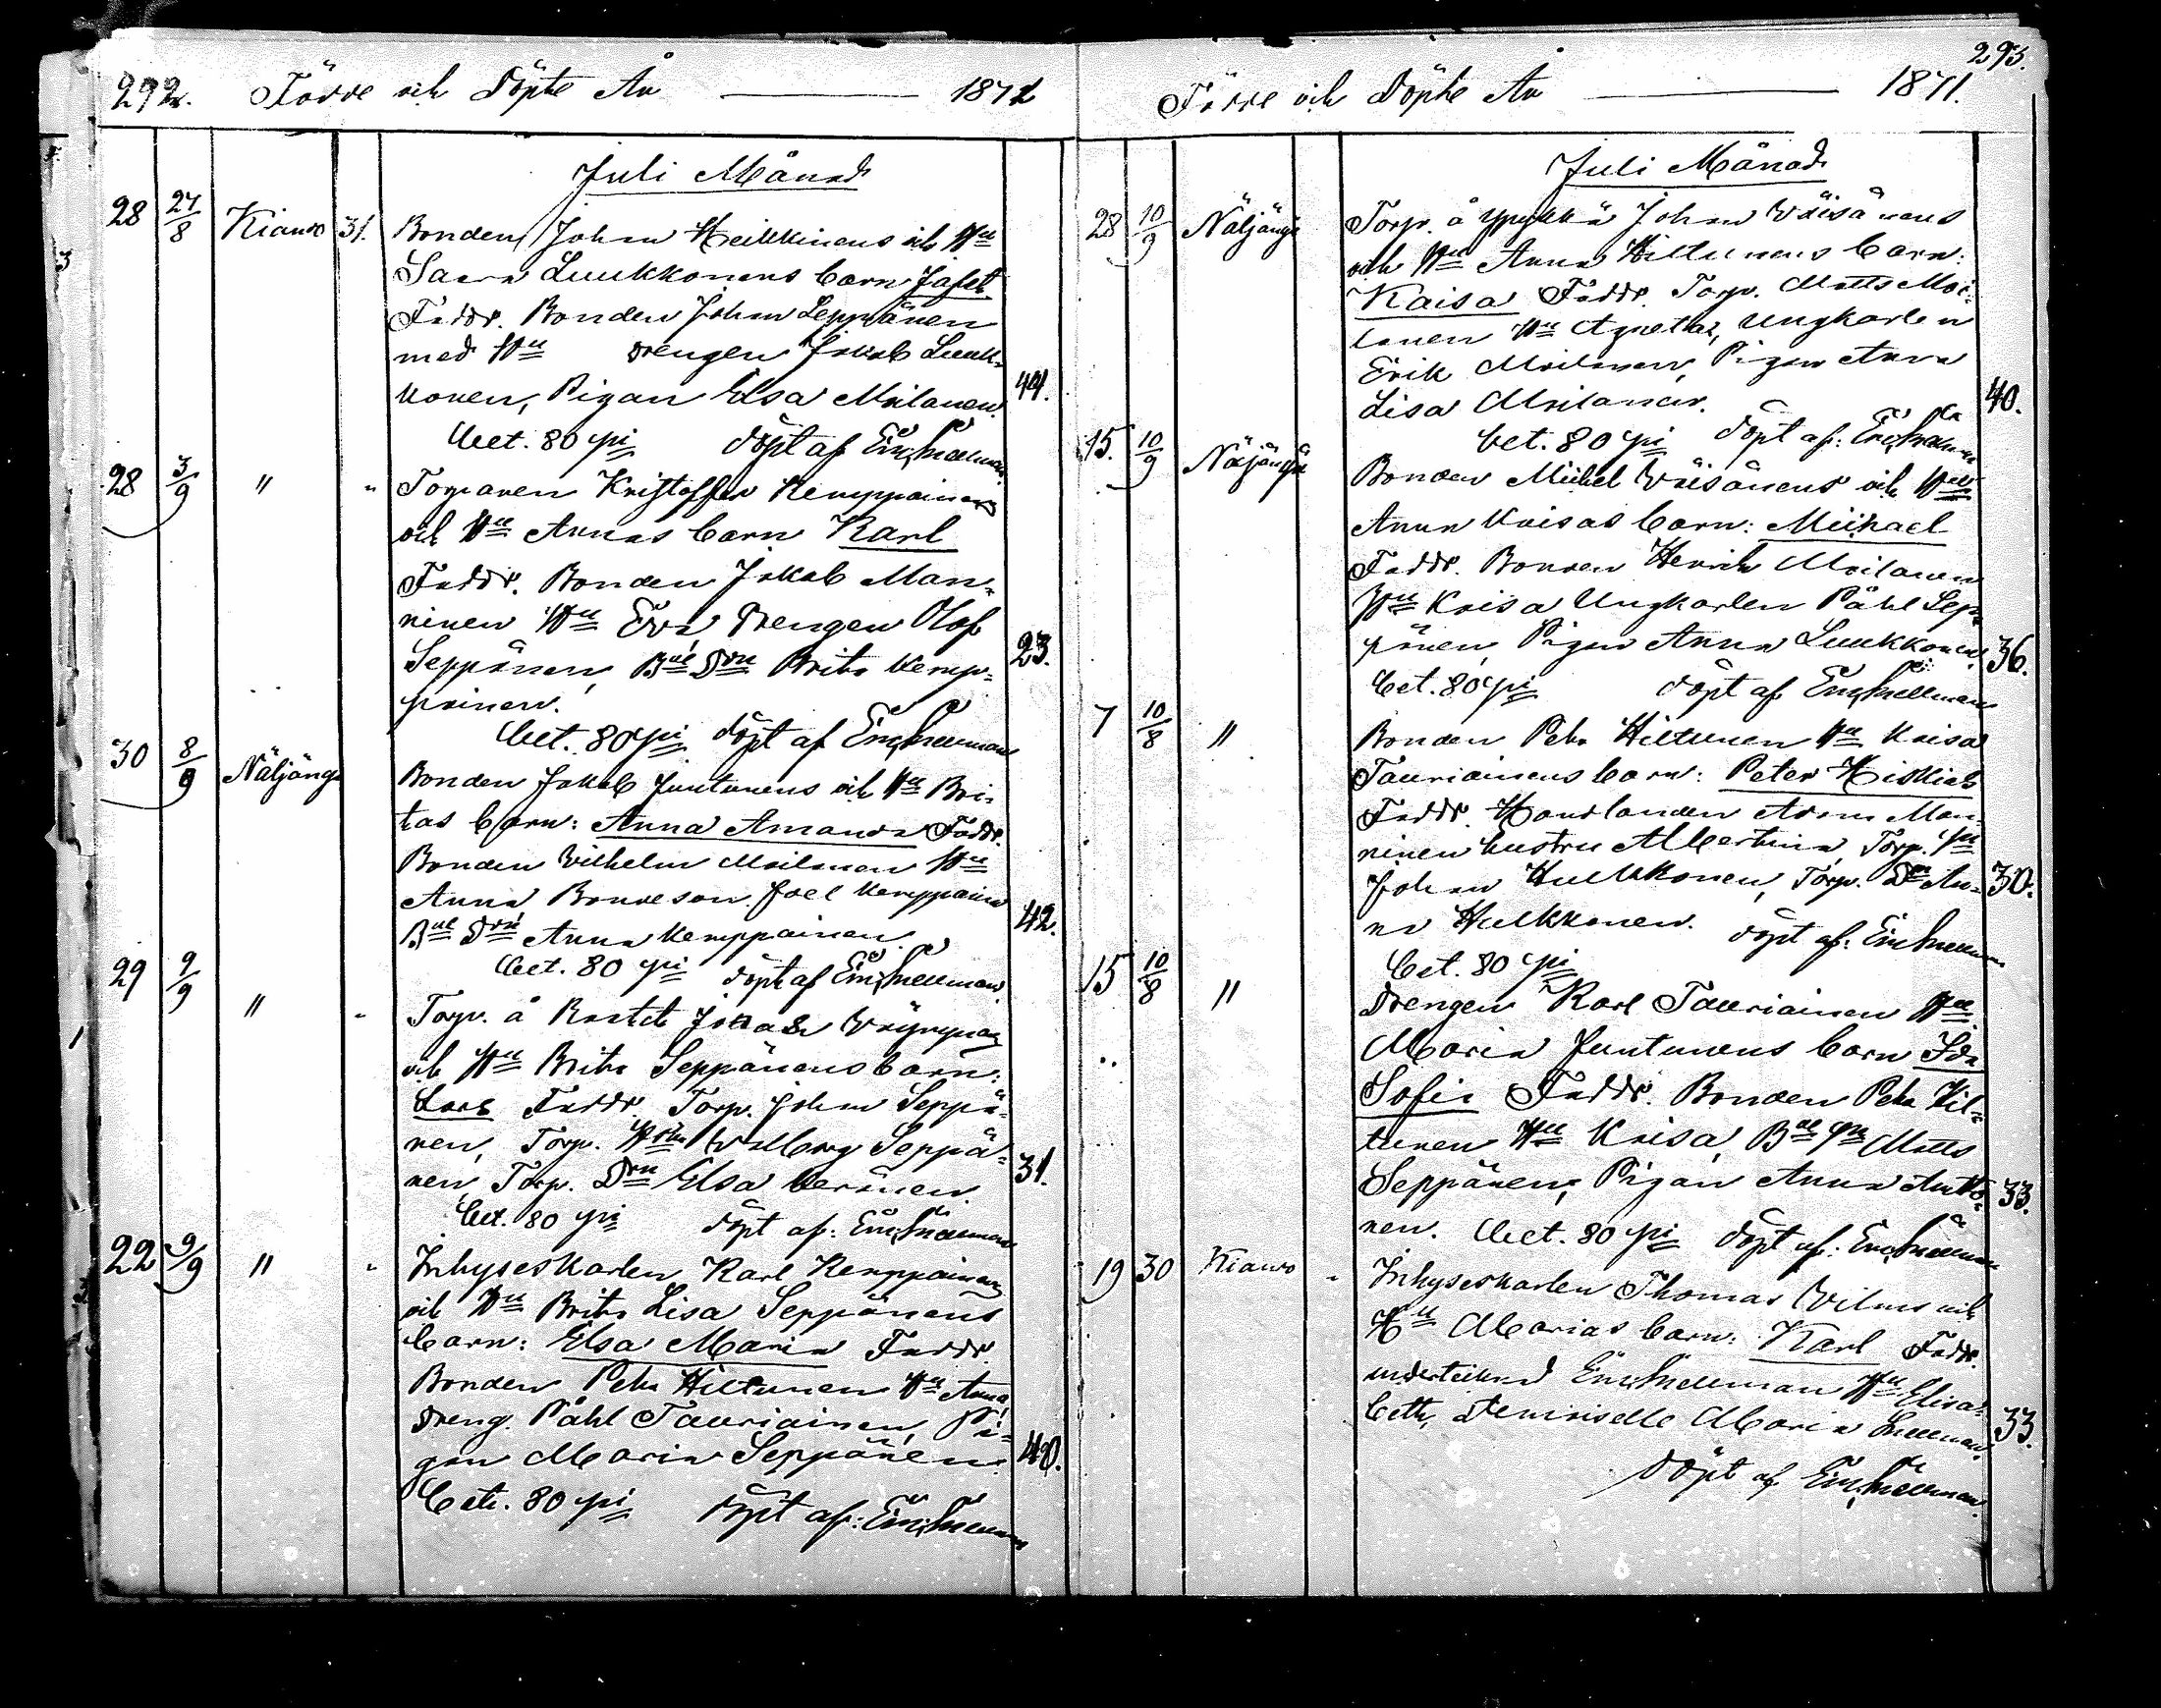 292. Födde och Döpte År 1871
Juli Månad
28 27/8 Kianto 31. Bonden Johan Heikkinens och Hu
Saara Luukkonens barn Jafet
Faddr. Bonden Johan Seppänen
med Hu drengen Jakob Luuk-
konen, Pigan Elsa Moilanen. 44.
Bet. 80 pi döpt af Em. Snellman
28 3/9 " " Torparen Kristoffer Kemppainens
och Hu Annas barn Karl
Faddr. Bonden Jakob Man-
ninen Hu Eva, Drengen Olof
Seppänen, Bde Dru Brita Kemp- 23.
painen.
Bet. 80 pi döpt af Em. Snellman
30 8/9 Näljänge Bonden Jakob Juntunens och Hu Bri-
tas barn: Anna Amanda Faddr.
Bonden Vilhelm Moilanen Hu
Anna Bondeson Joel Kemppainen
Bde Dru Anna Kemppainen. 42.
Bet. 80 pi döpt af Em. Snellman
29 9/9 " " Torp. å Johan
och Hu Brita Seppänens barn:
Lars Faddr. Torp. Johan Seppä-
nen, Torp. Hru Wallborg Seppä-
nen, Torp. Dru Elsa Keränen. 31.
Bet. 80 pi döpt af: Em. Snellman
22 9/9 " " Inhyseskarlen Karl Kemppainens
och Hu Brita Lisa Seppänens
barn: Elsa Maria Faddr.
Bonden Petr Hiltunen Hu Anna,
Dreng. Påhl Tauriainen, Pi-
gan Maria Seppänen. 40.
Bet. 80 pi döpt af: Em. Snellman
293.
Födde och Döpte År 1871.
Juli Månad
28 10/9 Näljänge Torp. å Johan Väisänens
och Hu Anna Hiltunens barn:
Kaisa Faddr. Torp. Matts Moi-
lanen Hu Agneta, Ungkarlen
Erik Moilanen, Pigan Anna
Lisa Moilanen. 40.
bet. 80 pi döpt af: Em. Snellman
15. 10/9 Näljänge Bonden Mickel Väisänens och Hu
Anna Kaisas barn: Michael
Faddr. Bonden Henrik Moilanen
Hu Kaisa Ungkarlen Påhl Sep-
pänen, Pigan Anna Luukkonen. 36.
bet. 80 pi döpt af Em. Snellman
7 10/8 " Bonden Petr Hiltunen Hu Kaisa
Tauriainens barn: Peter Hiskias
Faddr. Handlanden Adam Man-
ninen hustru Albertina, Torp.
Johan Hulkkonen, Torp. Dr An- 30.
na Hulkkonen. döpt af: Em. Snellman
bet. 80 pi
15 10/8 " Drengen Karl Tauriainen Hu
Maria Juntunens barn Ida
Sofia Faddr. Bonden Petr Hil-
tunen Hu Kaisa, Bde Matts
Seppänen, Pigan Anna Antto- 33.
nen. Bet. 80 pi döpt af: Em. Snellman
19 30 Kianto " Inhyseskarlen Thomas Vilmi och
Hu Marias barn: Karl Fadr.
undertecknad Em. Snellman Hu Elisa-
beth, Demoiselle Maria Snellman. 33.
döpt af Em. Snellman.